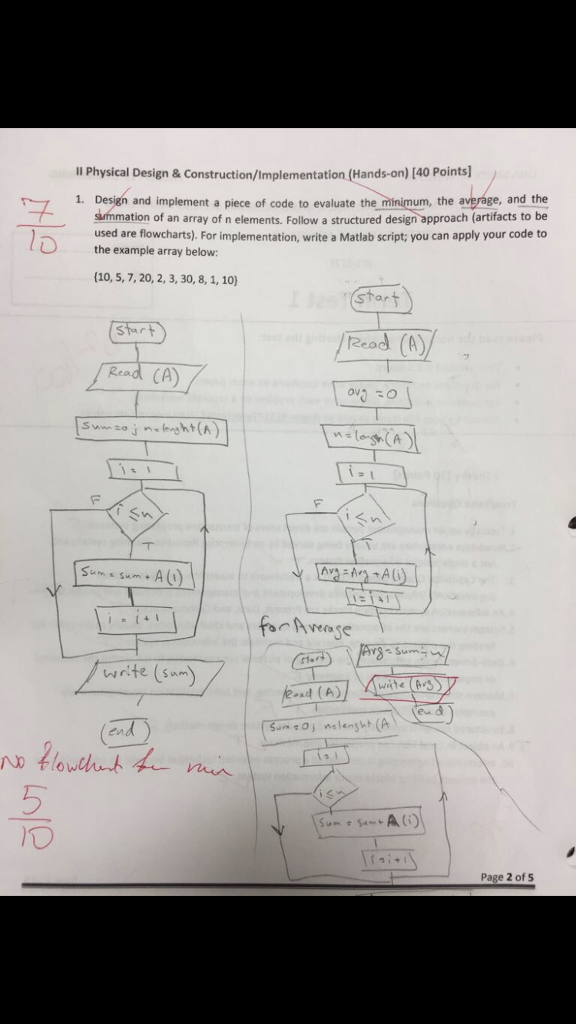 II Physical Design & Construction/Implementation (Hands-on) [40 Points]
7
10
1. Design and implement a piece of code to evaluate the minimum, the average, and the
summation of an array of n elements. Follow a structured design approach (artifacts to be
used are flowcharts). For implementation, write a Matlab script; you can apply your code to
the example array below:
{10, 5, 7, 20, 2, 3, 30, 8, 1, 10}
start
Read (A)
sum=0; n=lenght(A)
i = 1
F
i ≤ n
T
Sum = sum + A(i)
i = i + 1
write (sum)
end
start
Read (A)
avg = 0
(A)
i = 1
F
i ≤ n
T
Avg = Avg + A(i)
i = i + 1
for Average
Avg = sum ÷ n
write (Avg)
end
start
Read (A)
Sum = 0; n=lenght (A
i = 1
i ≤ n
Sum = sum + A(i)
i = i + 1
No flowchart for min
5
10
Page 2 of 5